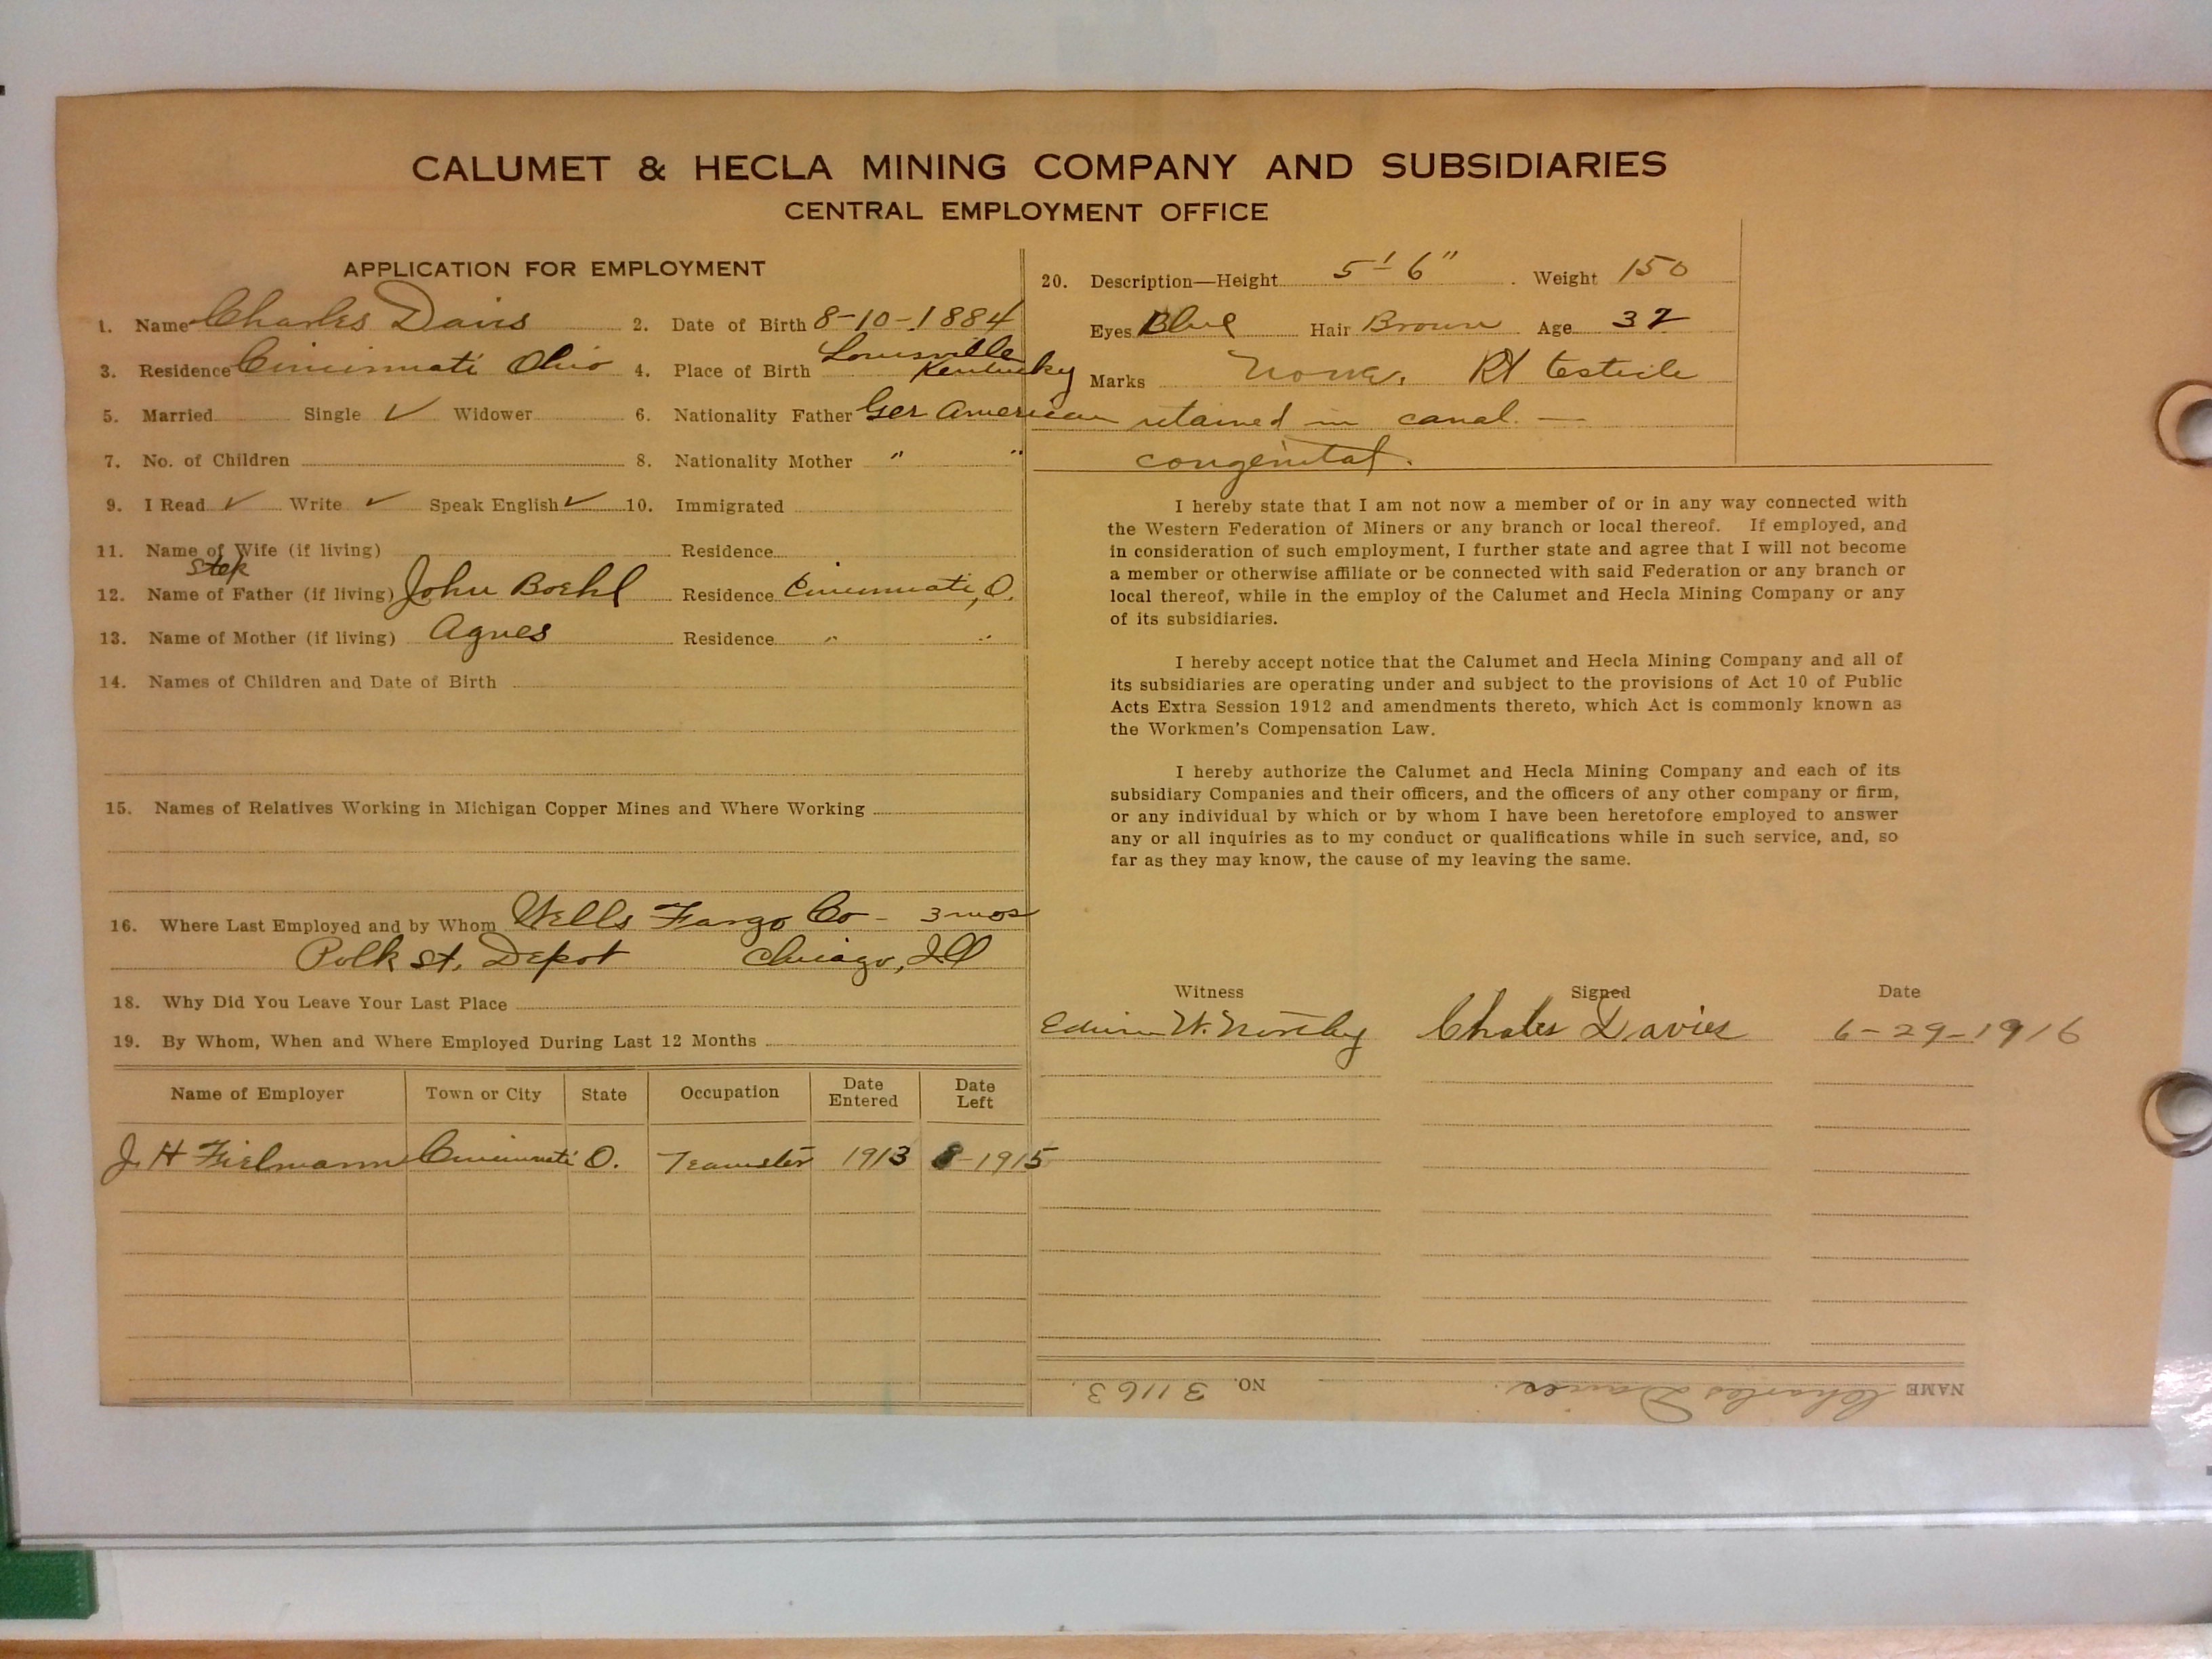 CALUMET & HECLA MINING COMPANY AND SUBSIDIARIES
CENTRAL EMPLOYMENT OFFICE
APPLICATION FOR EMPLOYMENT
1. Name Charles Davis 2. Date of Birth 8-10-1884
3. Residence Cincinnati Ohio 4. Place of Birth Louisville Kentucky
5. Married Single ✓ Widower 6. Nationality Father Ger American
7. No. of Children 8. Nationality Mother " "
9. I Read ✓ Write ✓ Speak English ✓ 10. Immigrated
11. Name of Wife (if living) Residence
Step
12. Name of Father (if living) John Boehl Residence Cincinnati, O.
13. Name of Mother (if living) Agnes Residence " "
14. Names of Children and Date of Birth
15. Names of Relatives Working in Michigan Copper Mines and Where Working
16. Where Last Employed and by Whom Wells Fargo Co - 3 mos
Polk St. Depot Chicago, Ill
18. Why Did You Leave Your Last Place
19. By Whom, When and Where Employed During Last 12 Months
Name of Employer Town or City State Occupation Date Entered Date Left
J. H Cincinnati O. Teamster 1913 8-1915
20. Description—Height 5'-6" Weight 150
Eyes Blue Hair Brown Age 32
Marks None. Rt testicle
retained in canal. —
congenital.
I hereby state that I am not now a member of or in any way connected with
the Western Federation of Miners or any branch or local thereof. If employed, and
in consideration of such employment, I further state and agree that I will not become
a member or otherwise affiliate or be connected with said Federation or any branch or
local thereof, while in the employ of the Calumet and Hecla Mining Company or any
of its subsidiaries.
I hereby accept notice that the Calumet and Hecla Mining Company and all of
its subsidiaries are operating under and subject to the provisions of Act 10 of Public
Acts Extra Session 1912 and amendments thereto, which Act is commonly known as
the Workmen's Compensation Law.
I hereby authorize the Calumet and Hecla Mining Company and each of its
subsidiary Companies and their officers, and the officers of any other company or firm,
or any individual by which or by whom I have been heretofore employed to answer
any or all inquiries as to my conduct or qualifications while in such service, and, so
far as they may know, the cause of my leaving the same.
Witness Signed Date
Edwin W. Chales Davies 6-29-1916
NAME Charles Davies. NO. 31163.